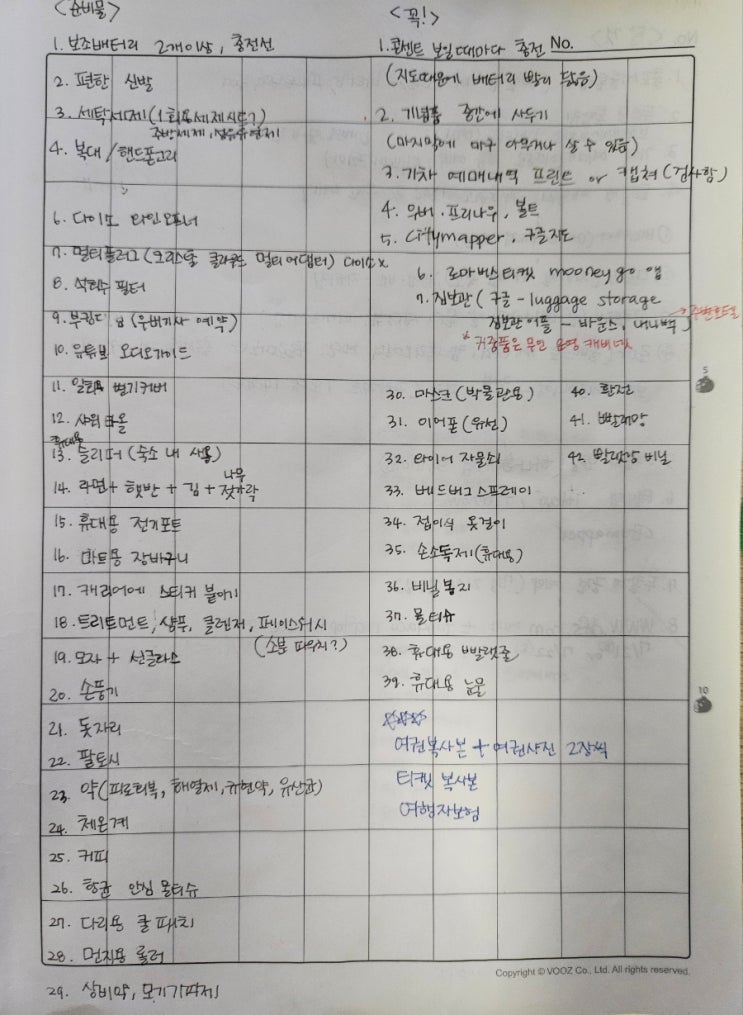 <준비물>
1. 보조배터리 2개이상, 충전선
2. 편한 신발
3. 세탁세제 (1회용세제시트?)
주방세제, 섬유유연제
4. 복대 / 핸드폰고리
6. 다이소 와인오프너
7. 멀티플러그 (크리스탈 클라우드 멀티어댑터) 다이소x
8. 석회수 필터
9. (우버기사 예약)
10. 유튜브 오디오가이드
11. 일회용 변기커버
12. 샤워타올
휴대용
13. 슬리퍼 (숙소 내 사용)
14. 라면 + 햇반 + 김 + 나무젓가락
15. 휴대용 전기포트
16. 마트용 장바구니
17. 캐리어에 스티커 붙이기
18. 트리트먼트, 샴푸, 클렌저, 페이스워시
(소분 파우치?)
19. 모자 + 선글라스
20. 손풍기
21. 돗자리
22. 팔토시
23. 약 (피로회복, 해열제, 유산균)
24. 체온계
25. 커피
26. 항균 안심 물티슈
27. 다리용 쿨패치
28. 먼지용 롤러
29. 상비약, 모기기피제
<꼭!>
1. 콘센트 보일때마다 충전 No.
(지도때문에 배터리 빨리 닳음)
2. 기념품 중간에 사두기
(마지막에 마구 아무거나 살 수 있음)
3. 기차 예매내역 프린트 or 캡쳐 (검사함)
4. 우버, 프리나우, 볼트
5. Citymapper, 구글지도
6. 로마버스티켓 mooney go 앱
7. 짐보관 (구글 - luggage storage
짐보관어플 - 바운스, 내니백) → 주변호텔
* 귀중품은 무인 운영 캐비넷
30. 마스크 (박물관용)
31. 이어폰 (유선)
32. 와이어 자물쇠
33. 베드버그 스프레이
34. 접이식 옷걸이
35. 손소독제 (휴대용)
36. 비닐봉지
37. 물티슈
38. 휴대용 빨랫줄
39. 휴대용
40. 환전
41. 빨래망
42. 빨랫감 비닐
☆☆☆☆
여권복사본 + 여권사진 2장씩
티켓 복사본
여행자보험
5
10
Copyright © VOOZ Co., Ltd. All rights reserved.